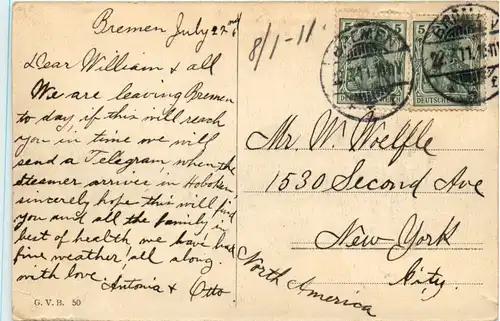 Bremen July 22nd
8/1-11.
Dear William & all
We are leaving Bremen
to day, if this will reach
you in time we will
send a Telegram, when the
steamer arrives in Hoboken
sincerely hope this will find
you and all the family in
best of health, we have had
fine weather all along.
with love.
Antonia &
Otto.
G. V. B. 50
5
5
BREMEN
Mr. W. Woelfle
1530 Second Ave
New York
City.
North America